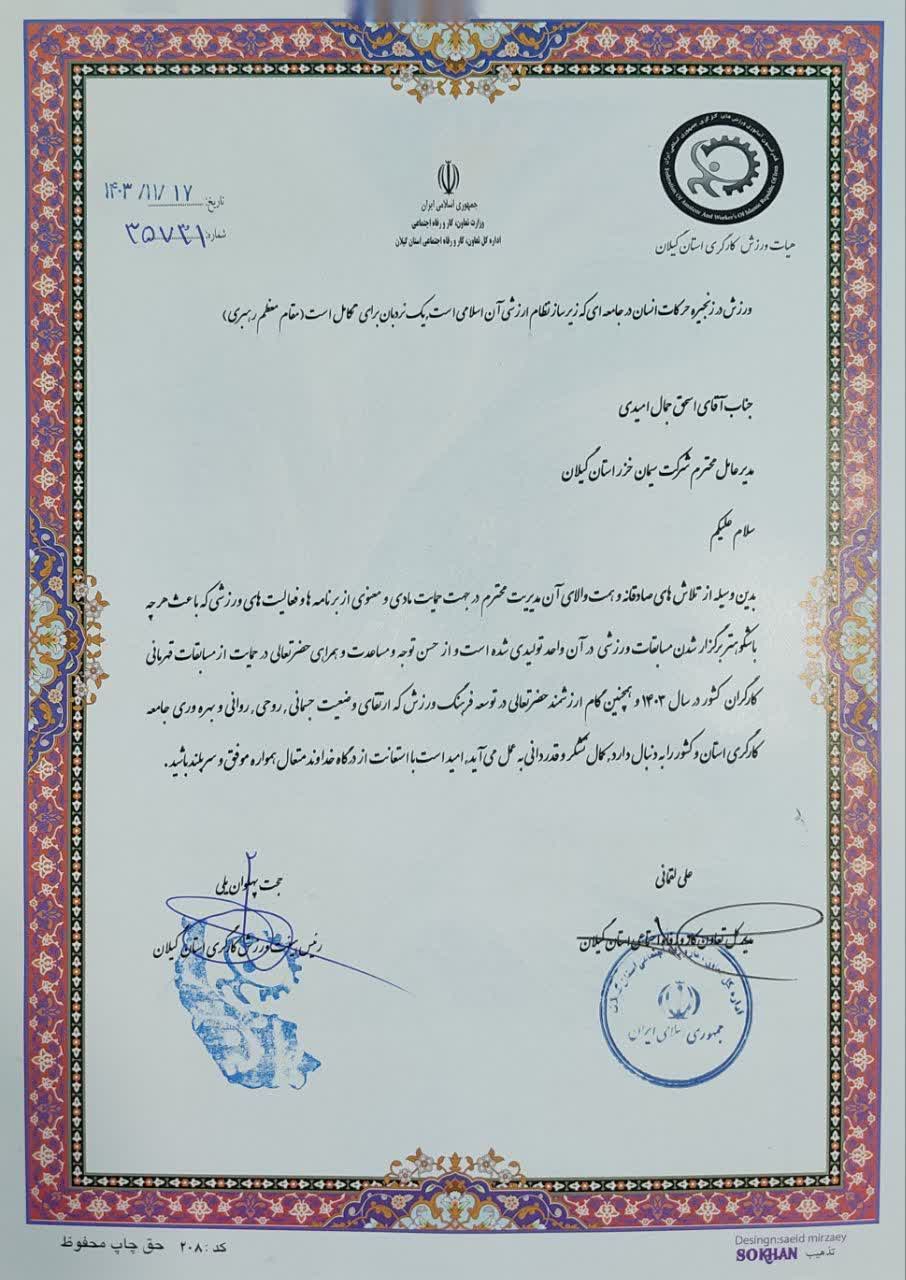 جمهوری اسلامی ایران
وزارت تعاون، کار و رفاه اجتماعی
اداره کل تعاون، کار و رفاه اجتماعی استان گیلان
Federation Of Amateur And Worker's Of Islamic Republic Of Iran
هیات ورزش کارگری استان گیلان
تاریخ: ۱۴۰۳/۱۱/۱۷
شماره: ۳۵۷۳۱
ورزش در زنجیره حرکات انسان در جامعه ای که زیر ساز نظام ارزشی آن اسلامی است، یک نردبان برای تکامل است (مقام معظم رهبری)
جناب آقای اسحق جمال امیدی
مدیرعامل محترم شرکت سیمان خزر استان گیلان
سلام علیکم
بدین وسیله از تلاش های صادقانه و همت والای آن مدیریت محترم در جهت حمایت مادی و معنوی از برنامه ها و فعالیت های ورزشی که باعث هر چه
باشکوهتر برگزار شدن مسابقات ورزشی در آن واحد تولیدی شده است و از حسن توجه و مساعدت و همراهی حضرتعالی در حمایت از مسابقات قهرمانی
کارگران کشور در سال ۱۴۰۳ و همچنین گام ارزشمند حضرتعالی در توسعه فرهنگ ورزش که ارتقای وضعیت جسمانی، روحی، روانی و بهره وری جامعه
کارگری استان و کشور را به دنبال دارد، کمال تشکر و قدردانی به عمل می آید، امید است با استعانت از درگاه خداوند متعال همواره موفق و سربلند باشید.
علی لقمانی
مدیر کل تعاون، کار و رفاه اجتماعی استان گیلان
جمهوری اسلامی ایران
حجت پهلوان یلی
رئیس هیئت ورزش کارگری استان گیلان
کد: ۲۰۸ حق چاپ محفوظ
Desingn:saeid mirzaey
SOKHAN تذهیب